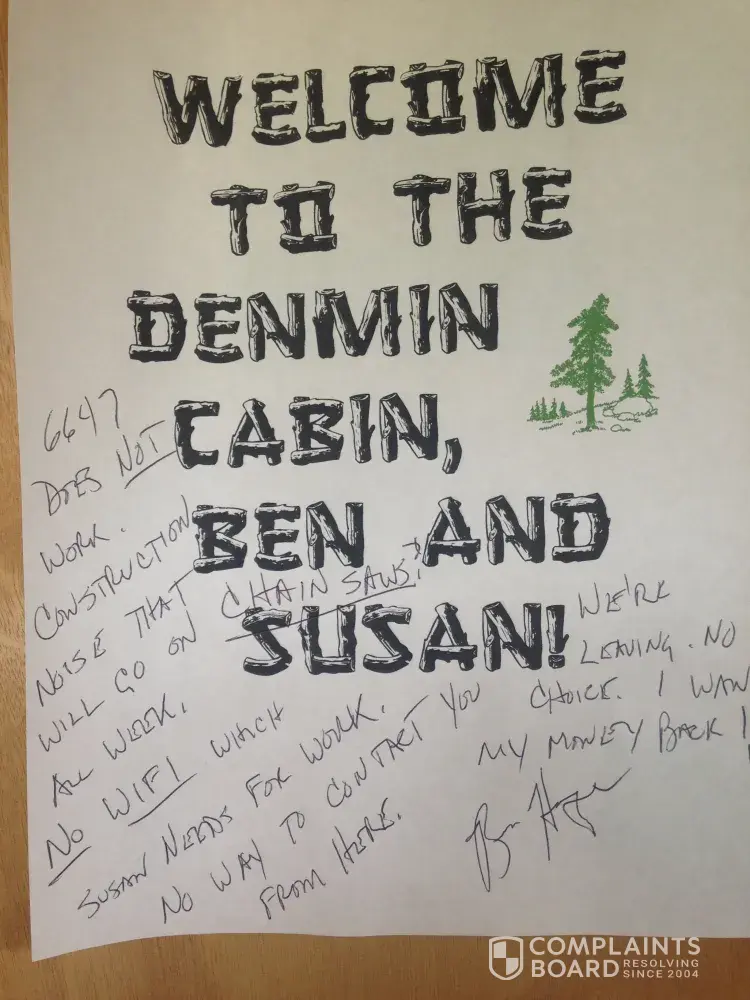 WELCOME
TO THE
DENMIN
CABIN,
BEN AND
SUSAN!
6647
DOES NOT
WORK.
CONSTRUCTION
NOISE THAT
WILL GO ON CHAIN SAWS!
ALL WEEK.
NO WIFI WHICH
SUSAN NEEDS FOR WORK.
NO WAY TO CONTACT YOU
FROM HERE.
WE'RE
LEAVING. NO
CHOICE. I WAN
MY MONEY BACK!
Ben
COMPLAINTS
BOARD RESOLVING
SINCE 2004